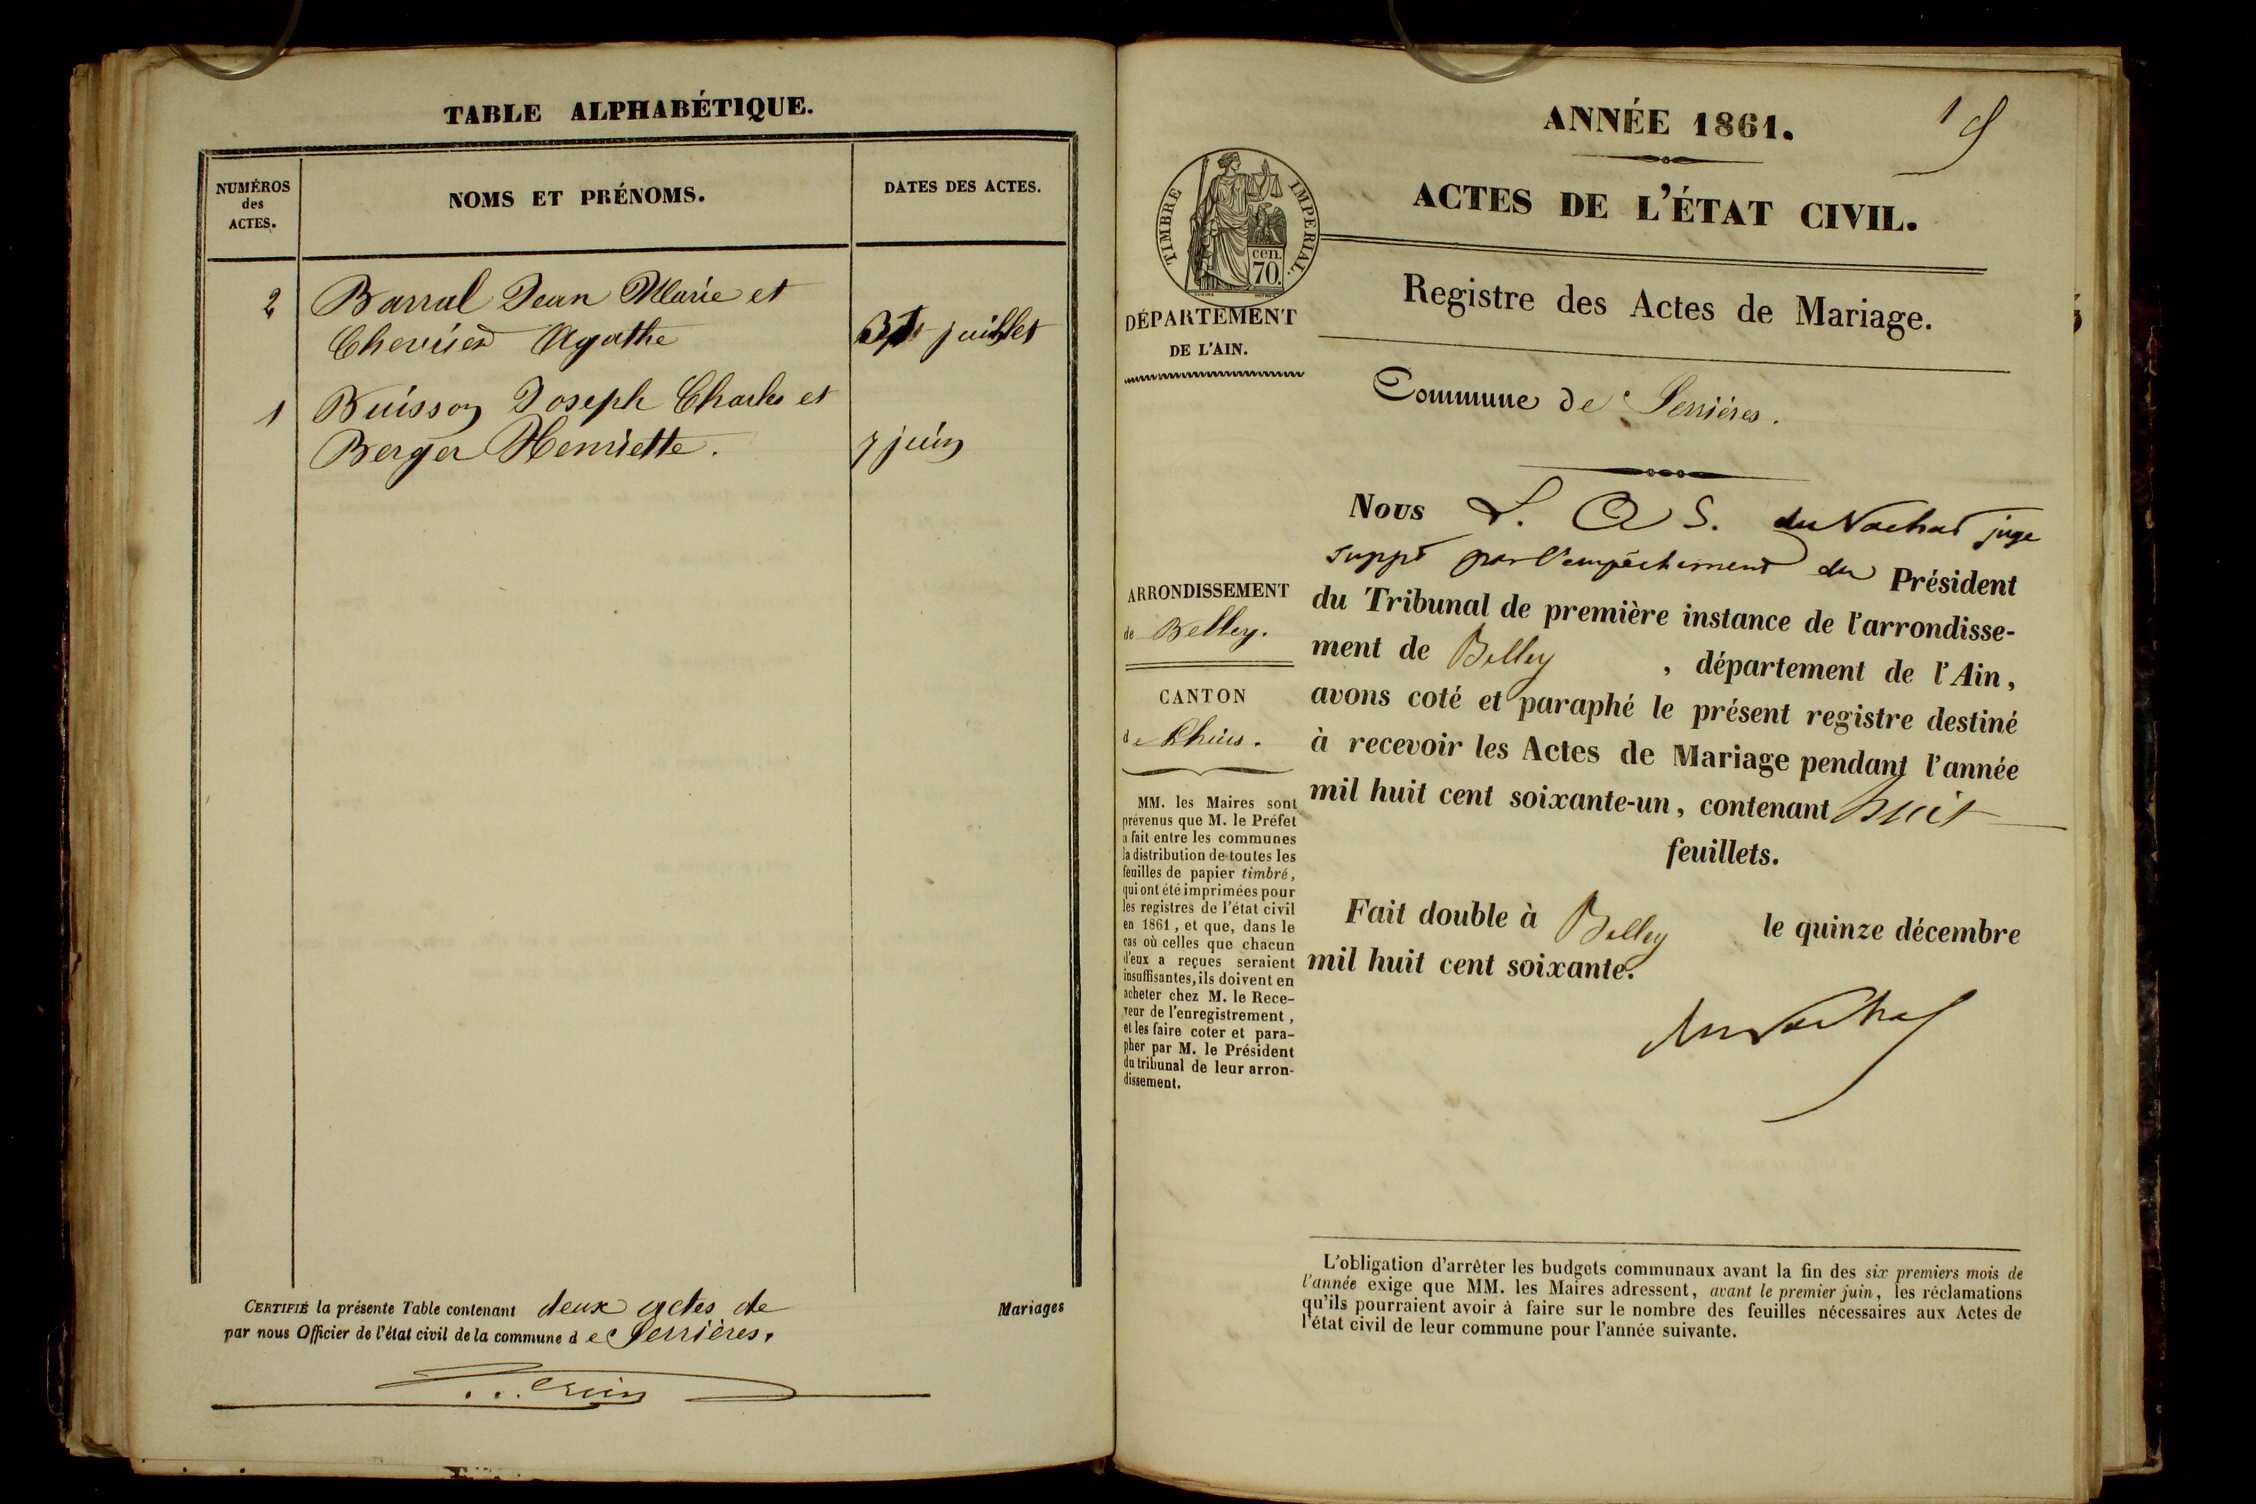 TABLE ALPHABÉTIQUE.
NUMÉROS
des
ACTES.
NOMS ET PRÉNOMS.
DATES DES ACTES.
2
Barral Jean Marie et
Agathe
juillet
1
Buisson Joseph Charles et
Berger Henriette.
7 juin
CERTIFIÉ la présente Table contenant deux actes de Mariages
par nous Officier de l'état civil de la commune de Serrières.
ANNÉE 1861.
1
ACTES DE L'ÉTAT CIVIL.
TIMBRE IMPERIAL.
cen.
70.
DÉPARTEMENT
DE L'AIN.
Registre des Actes de Mariage.
Commune de Serrières.
Nous L. du Nachat juge
suppt par l'empêchement du Président
du Tribunal de première instance de l'arrondisse-
ment de Belley, département de l'Ain,
avons coté et paraphé le présent registre destiné
à recevoir les Actes de Mariage pendant l'année
mil huit cent soixante-un, contenant huit
feuillets.
Fait double à Belley le quinze décembre
mil huit cent soixante.
du Nachat
ARRONDISSEMENT
de Belley.
CANTON
de Lhuis.
MM. les Maires sont
prévenus que M. le Préfet
a fait entre les communes
la distribution de toutes les
feuilles de papier timbré,
qui ont été imprimées pour
les registres de l'état civil
en 1861, et que, dans le
cas où celles que chacun
d'eux a reçues seraient
insuffisantes, ils doivent en
acheter chez M. le Rece-
veur de l'enregistrement,
et les faire coter et para-
pher par M. le Président
du tribunal de leur arron-
dissement.
L'obligation d'arrêter les budgets communaux avant la fin des six premiers mois de
l'année exige que MM. les Maires adressent, avant le premier juin, les réclamations
qu'ils pourraient avoir à faire sur le nombre des feuilles nécessaires aux Actes de
l'état civil de leur commune pour l'année suivante.